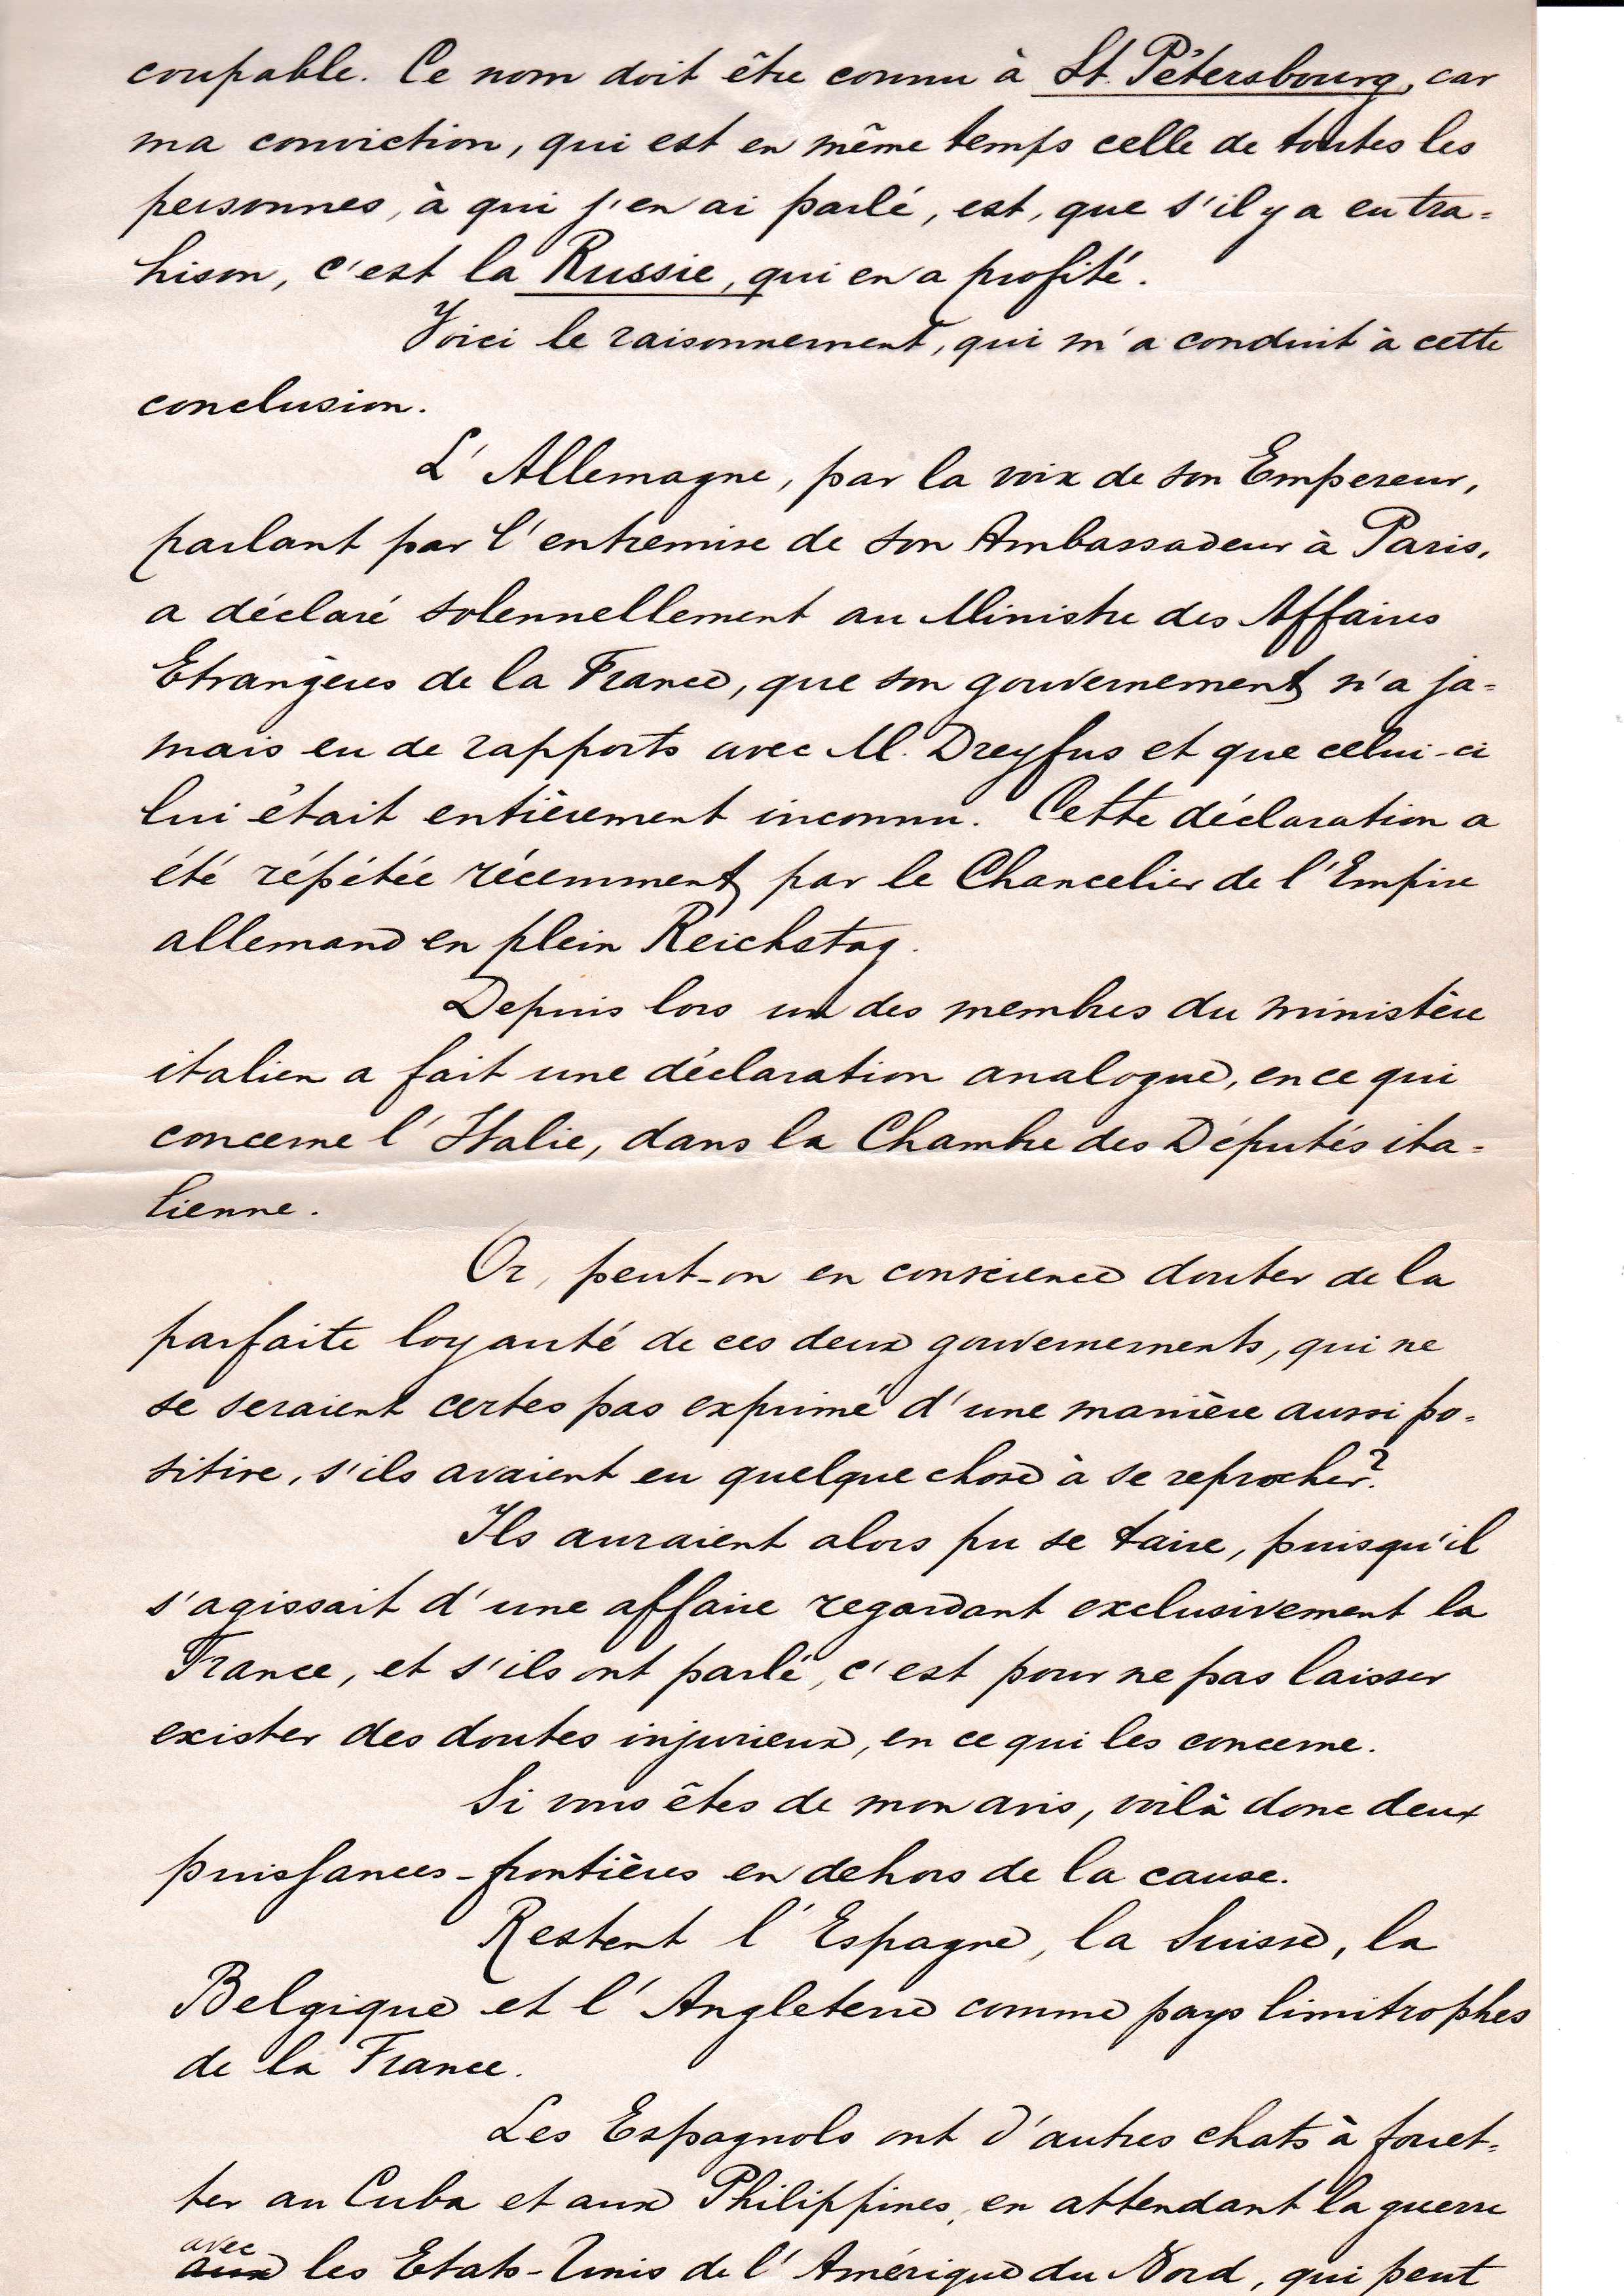 coupable. Ce nom doit être connu à St. Pétersbourg, car
ma conviction, qui est en même temps celle de toutes les
personnes, à qui j'en ai parlé, est, que s'il y a eu tra=
hison, c'est la Russie, qui en a profité.
Voici le raisonnement, qui m'a conduit à cette
conclusion.
L'Allemagne, par la voix de son Empereur,
parlant par l'entremise de son Ambassadeur à Paris,
a déclaré solennellement au Ministre des Affaires
Etrangères de la France, que son gouvernement n'a ja=
mais eu de rapports avec M. Dreyfus et que celui-ci
lui était entièrement inconnu. Cette déclaration a
été répétée récemment par le Chancelier de l'Empire
allemand en plein Reichstag.
Depuis lors un des membres du ministère
italien a fait une déclaration analogue, en ce qui
concerne l'Italie, dans la Chambre des Députés ita=
lienne.
Or, peut-on en conscience douter de la
parfaite loyauté de ces deux gouvernements, qui ne
se seraient certes pas exprimé d'une manière aussi po=
sitive, s'ils avaient eu quelque chose à se reprocher?
Ils auraient alors pu se taire, puisqu'il
s'agissait d'une affaire regardant exclusivement la
France, et s'ils ont parlé, c'est pour ne pas laisser
exister des doutes injurieux, en ce qui les concerne.
Si vous êtes de mon avis, voilà donc deux
puissances-frontières en dehors de la cause.
Restent l'Espagne, la Suisse, la
Belgique et l'Angleterre comme pays limitrophes
de la France.
Les Espagnols ont d'autres chats à fouet=
ter au Cuba et aux Philippines, en attendant la guerre
avec
aux les Etats-Unis de l'Amérique du Nord, qui peut